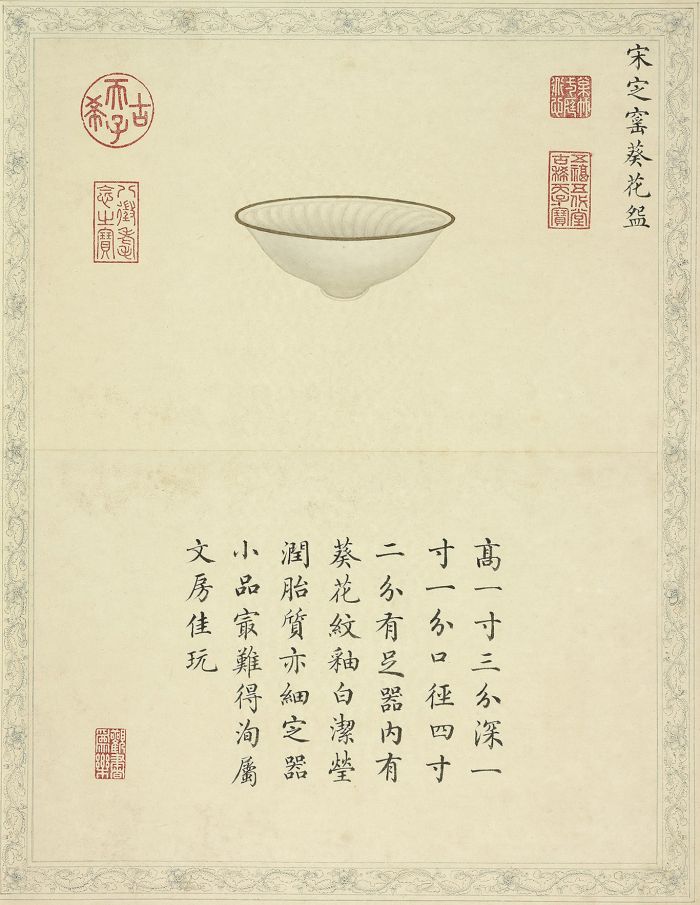 宋㝎窰葵花盌
五福五代堂
古稀天子寶
古希天子
八徵耄
念之寶
高一寸三分深一
寸一分口徑四寸
二分有足器内有
葵花紋釉白潔瑩
潤胎質亦細㝎器
小品㝡難得洵屬
文房佳玩
觀書
爲樂